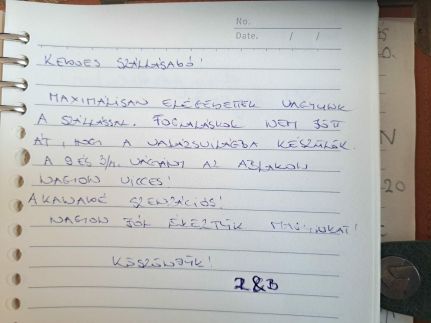 No.
Date. / /
KEDVES SZÁLLÁSADÓ!
MAXIMÁLISAN ELÉGEDETTEK VAGYUNK
A SZÁLLÁSSAL. FOGLALÁSKOR NEM JÖTT
ÁT, HOGY A VARÁZSVILÁGBA KÉSZÜLÜNK.
A 9 ÉS 3/4. VÁGÁNY AZ ABLAKON
NAGYON VICCES!
A KAKAÓ SZENZÁCIÓS!
NAGYON JÓL ÉREZTÜK MAGUNKAT!
KÖSZÖNJÜK!
Z&B
-20